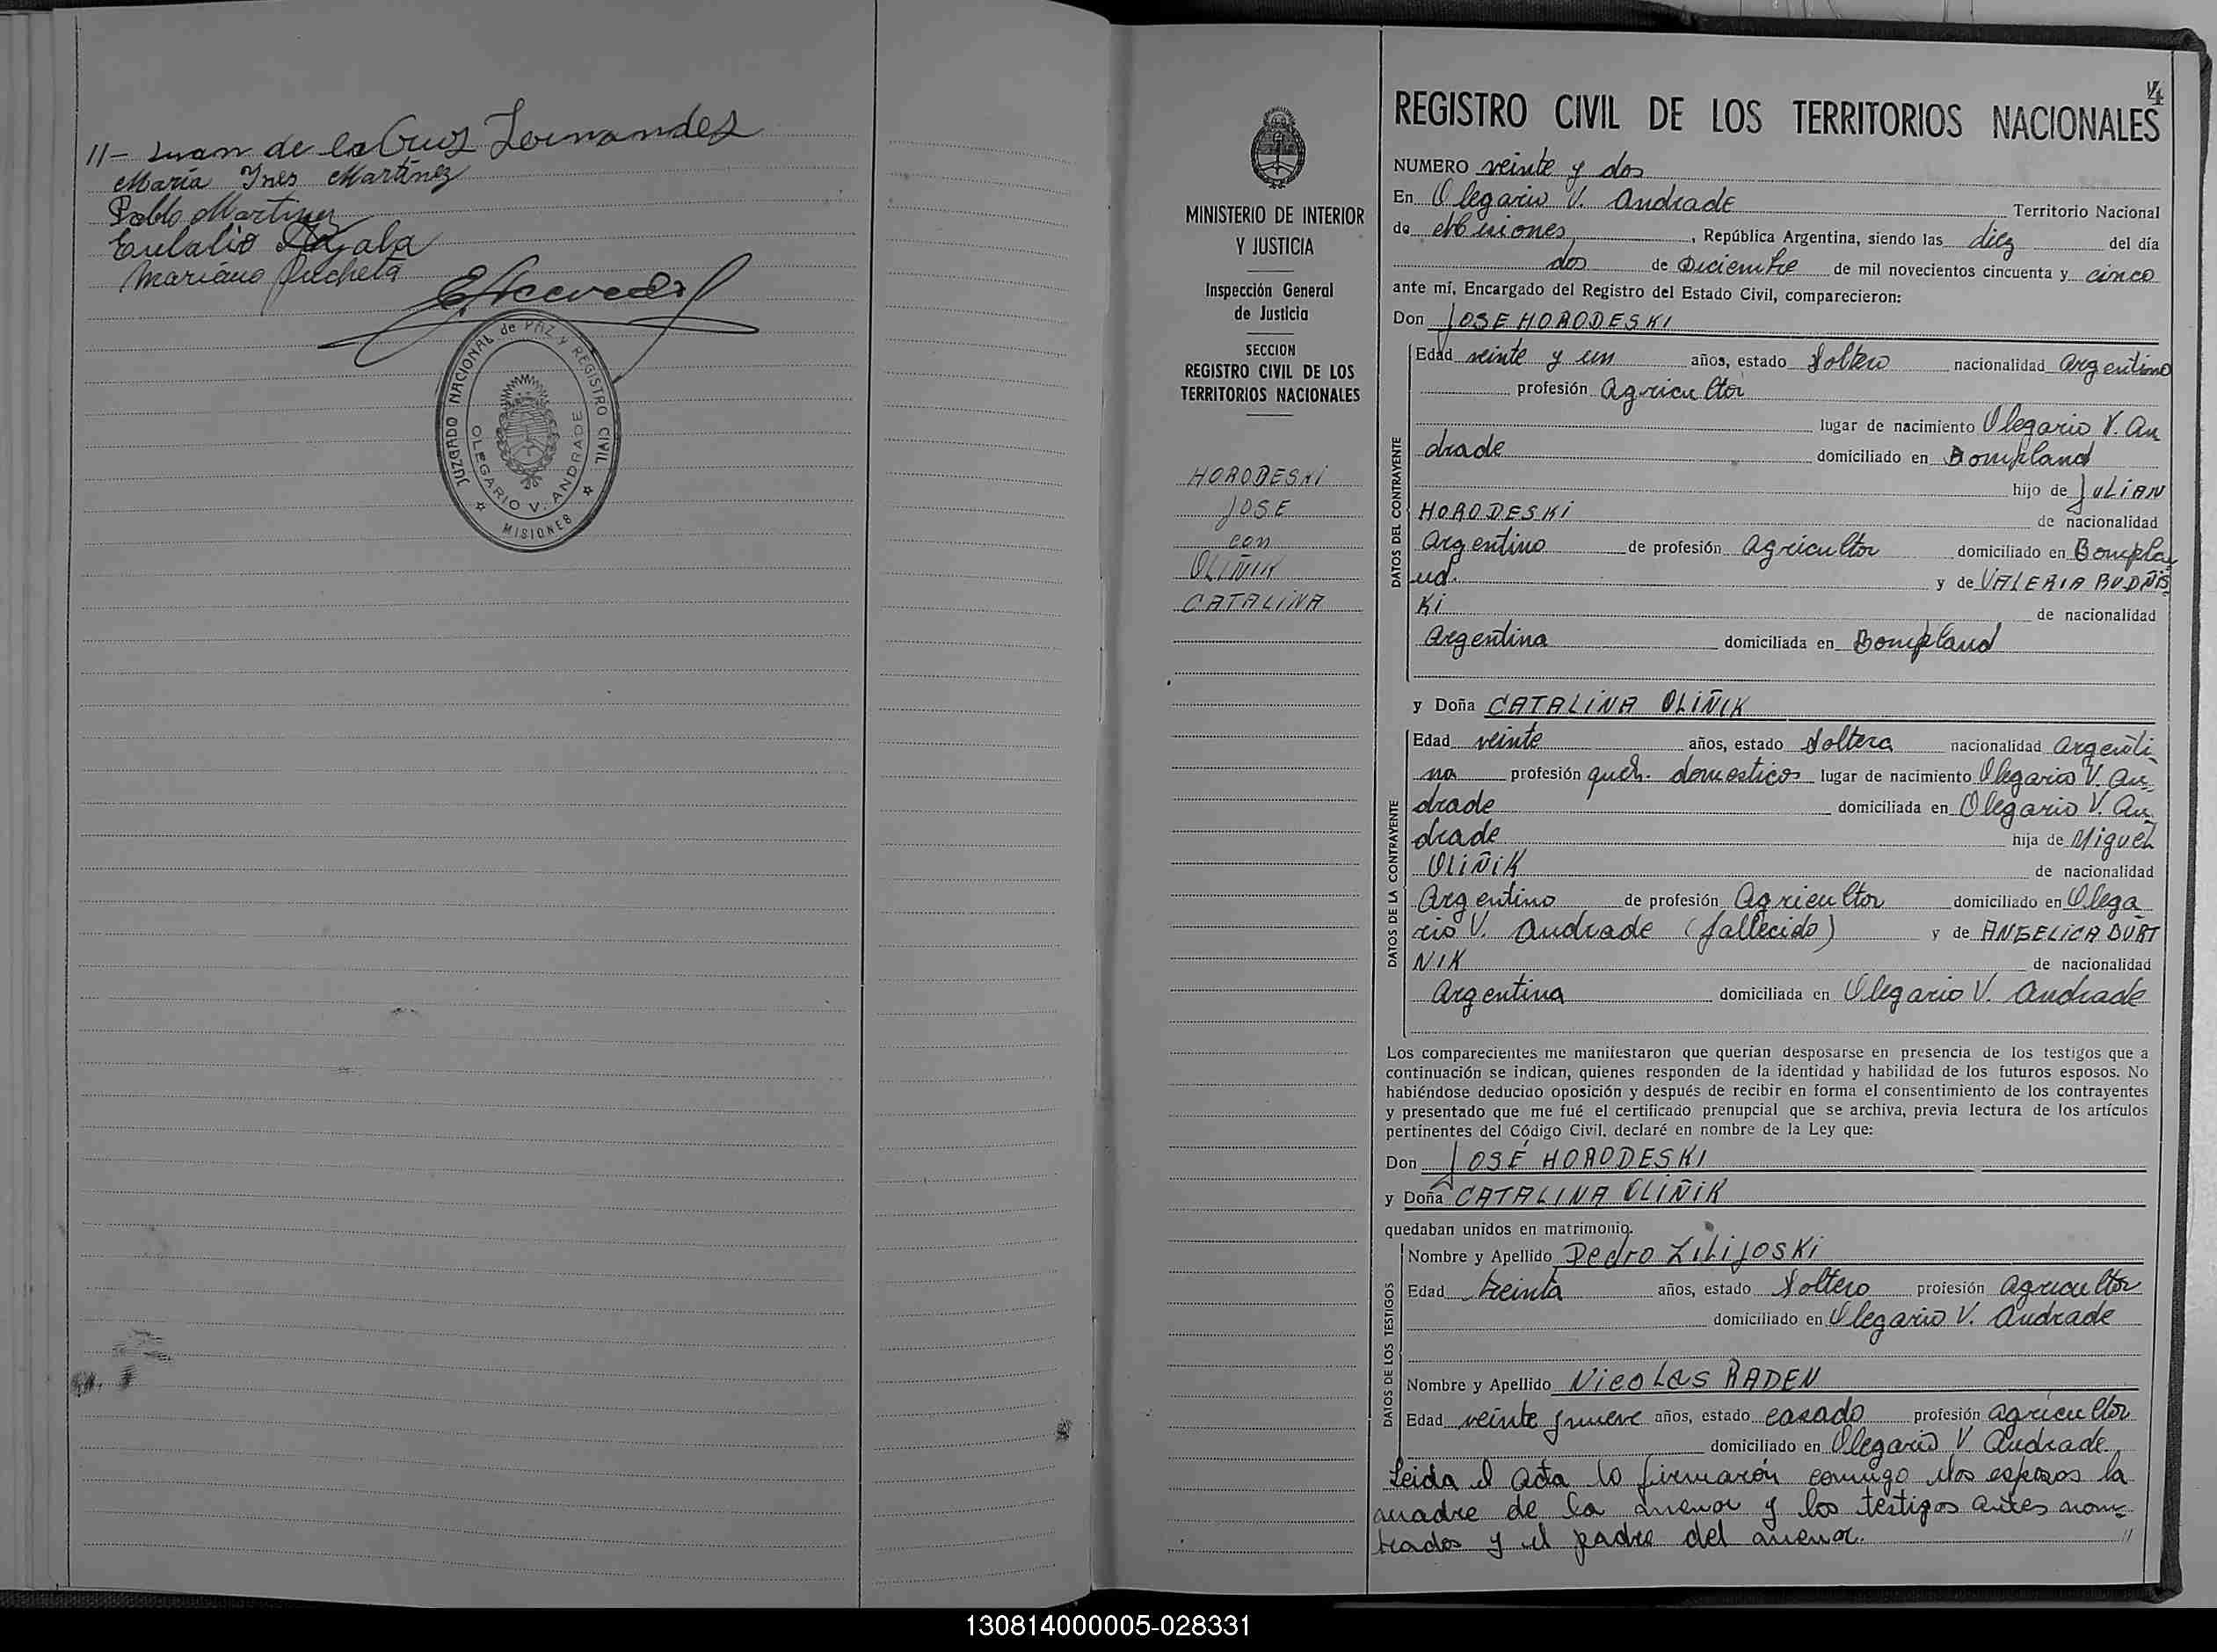 11- Juan de la Cruz Fernandez
Maria Ines Martinez
Pablo Martinez
Eulalio Ayala
Mariano Pucheta
JUZGADO NACIONAL de PAZ Y REGISTRO CIVIL
OLEGARIO V. ANDRADE
MISIONES
MINISTERIO DE INTERIOR
Y JUSTICIA
Inspección General
de Justicia
SECCION
REGISTRO CIVIL DE LOS
TERRITORIOS NACIONALES
HORODESKI
JOSE
con
OLIÑIK
CATALINA
REGISTRO CIVIL DE LOS TERRITORIOS NACIONALES
NUMERO veinte y dos
En Olegario V. Andrade Territorio Nacional
de Misiones, República Argentina, siendo las diez del día
dos de Diciembre de mil novecientos cincuenta y cinco
ante mí, Encargado del Registro del Estado Civil, comparecieron:
Don JOSE HORODESKI
DATOS DEL CONTRAYENTE
Edad veinte y un años, estado Soltero nacionalidad Argentino
profesión Agricultor
lugar de nacimiento Olegario V. An
drade domiciliado en Bompland
hijo de JULIAN
HORODESKI de nacionalidad
Argentino de profesión Agricultor domiciliado en Bompla
nd. y de VALERIA BUDÑIS
KI de nacionalidad
Argentina domiciliada en Bompland
y Doña CATALINA OLIÑIK
DATOS DE LA CONTRAYENTE
Edad veinte años, estado Soltera nacionalidad Argenti
na profesión queh. domesticos lugar de nacimiento Olegario V. An
drade domiciliada en Olegario V. An
drade hija de Miguel
OLIÑIK de nacionalidad
Argentino de profesión Agricultor domiciliado en Olega
rio V. Andrade (fallecido) y de ANGELICA DURT
NIK de nacionalidad
Argentina domiciliada en Olegario V. Andrade
Los comparecientes me manifestaron que querían desposarse en presencia de los testigos que a
continuación se indican, quienes responden de la identidad y habilidad de los futuros esposos. No
habiéndose deducido oposición y después de recibir en forma el consentimiento de los contrayentes
y presentado que me fué el certificado prenupcial que se archiva, previa lectura de los artículos
pertinentes del Código Civil, declaré en nombre de la Ley que:
Don JOSÉ HORODESKI
y Doña CATALINA OLIÑIK
quedaban unidos en matrimonio.
DATOS DE LOS TESTIGOS
Nombre y Apellido Pedro ZILIJOSKI
Edad treinta años, estado Soltero profesión Agricultor
domiciliado en Olegario V. Andrade
Nombre y Apellido Nicolas RADEN
Edad veinte y nueve años, estado casado profesión agricultor
domiciliado en Olegario V Andrade.
Leida el acta lo firmarón conmigo los esposos la
madre de la menor y los testigos antes nom-
brados y el padre del menor. //
130814000005-028331